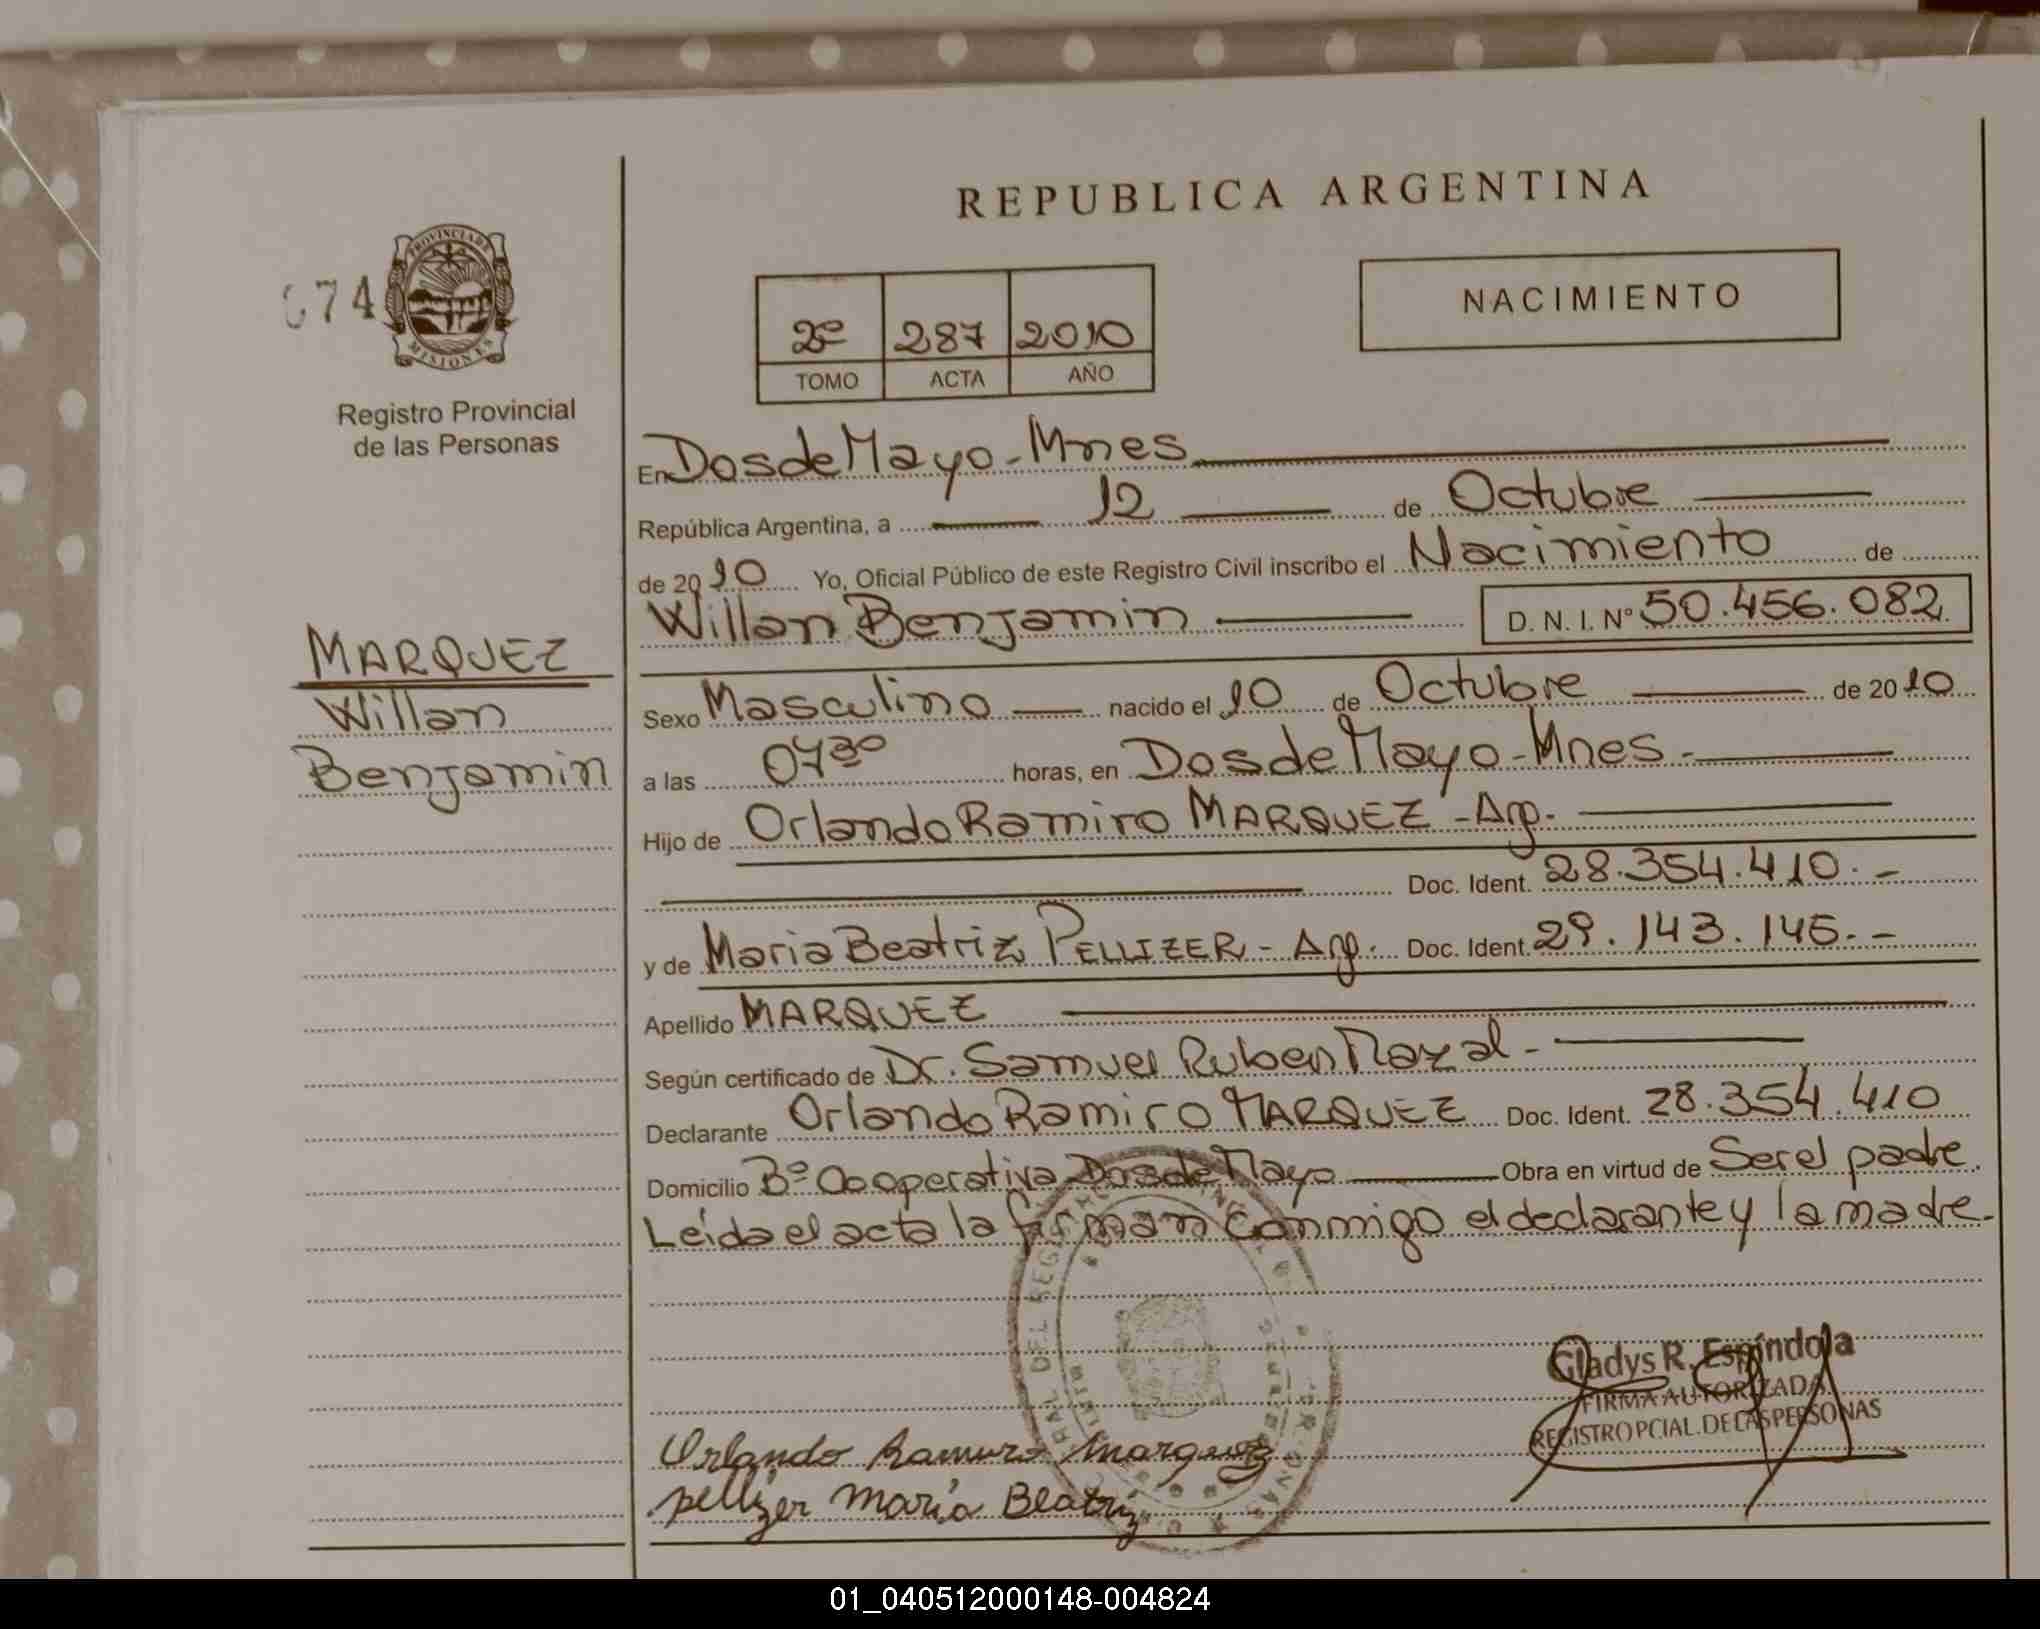 REPUBLICA ARGENTINA
074
PROVINCIA DE
MISIONES
Registro Provincial
de las Personas
NACIMIENTO
2º 287 2010
TOMO ACTA AÑO
En Dos de Mayo - Mnes
República Argentina, a 12 de Octubre
de 2010 Yo, Oficial Público de este Registro Civil inscribo el Nacimiento de
Willan Benjamin D. N. I. Nº 50.456.082
MARQUEZ
Willan
Benjamin
Sexo Masculino nacido el 10 de Octubre de 2010
a las 07 30 horas, en Dos de Mayo - Mnes -
Hijo de Orlando Ramiro MARQUEZ - Arg.
Doc. Ident. 28.354.410. -
y de Maria Beatriz PELLIZER - Arg. Doc. Ident. 29.143.145. -
Apellido MARQUEZ
Según certificado de Dr. Samuel Ruben -
Declarante Orlando Ramiro MARQUEZ Doc. Ident. 28.354.410
Domicilio Bº Cooperativa Dos de Mayo Obra en virtud de Ser el padre.
Leída el acta la firman conmigo el declarante y la madre.
Gladys R. Espíndola
FIRMA AUTORIZADA
REGISTRO PCIAL. DE LAS PERSONAS
Orlando Ramiro Marquez
pellizer María Beatriz
01_040512000148-004824